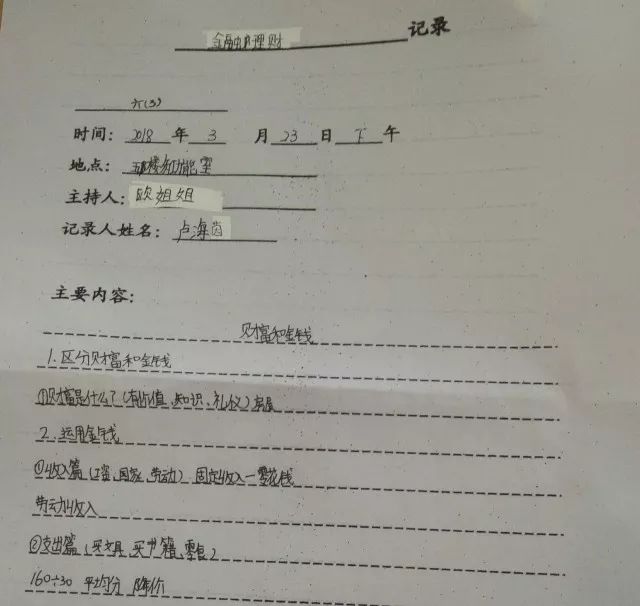 金融理财 记录
六(3)
时间: 2018 年 3 月 23 日 下 午
地点: 五楼多功能室
主持人: 欧姐姐
记录人姓名: 卢海茵
主要内容:
财富和金钱
1.区分财富和金钱
①财富是什么?(有价值、知识、礼仪)房屋
2.运用金钱
①收入篇(工资、国家、劳动) 固定收入一零花钱
劳动收入
②支出篇(买文具、买书籍、零食)
160÷30 平均分 降价